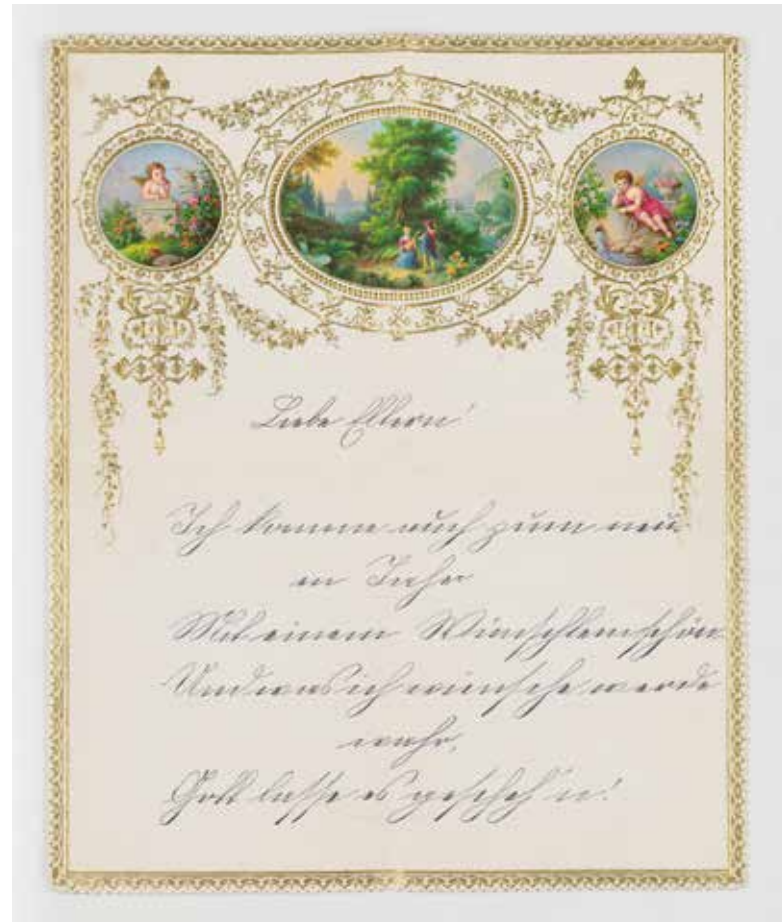 Liebe Eltern!
Ich komme auch zum neu-
en Jahr
Mit einem Wünschlein schön
Und was ich wünsche werde
wahr,
Gott lasse es gescheh'n!